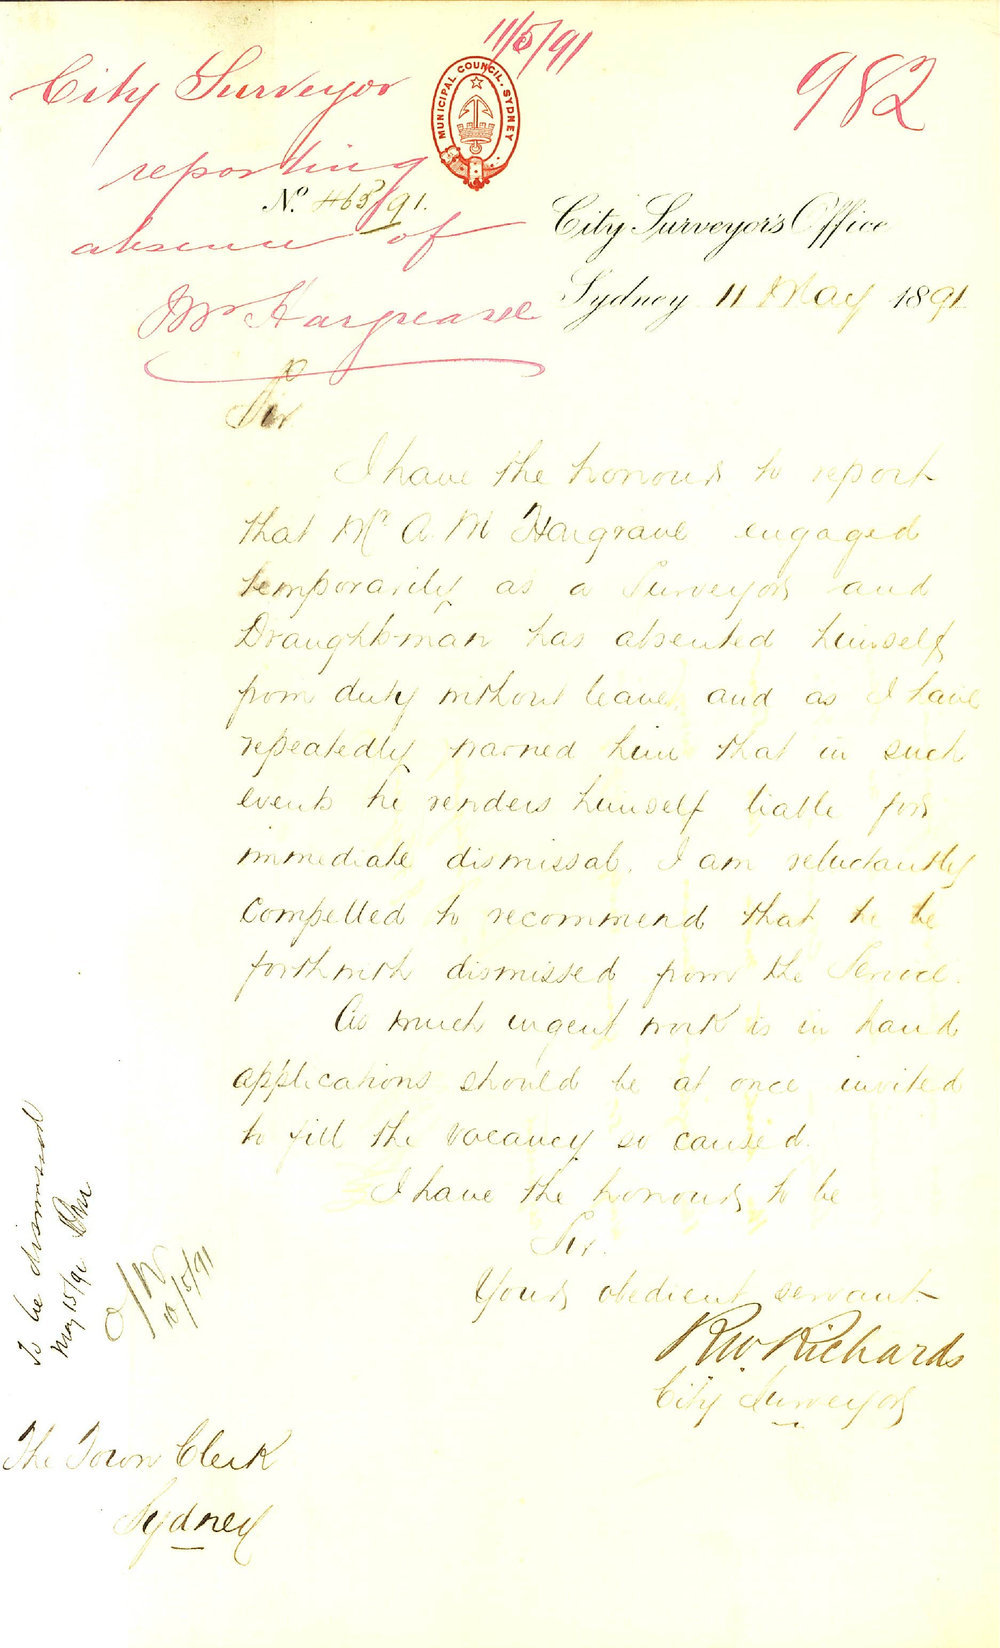 11/5/91
982
City Surveyor
reporting
absence of
Mr Hargrave
MUNICIPAL COUNCIL. SYDNEY
No. 465/91.
City Surveyor's Office
Sydney 11 May 1891
Sir
I have the honour to report
that Mr A. M Hargrave engaged
temporarily as a Surveyor and
Draughtsman has absented himself
from duty without leave, and as I have
repeatedly warned him that in such
events he renders himself liable for
immediate dismissal, I am reluctantly
compelled to recommend that he be
forthwith dismissed from the Service.
As much urgent work is in hand
applications should be at once invited
to fill the vacancy so caused.
I have the honour to be
Sir.
Your obedient servant
RW. Richards
City Surveyor
The Town Clerk
Sydney
To be dismissed
May 15/91